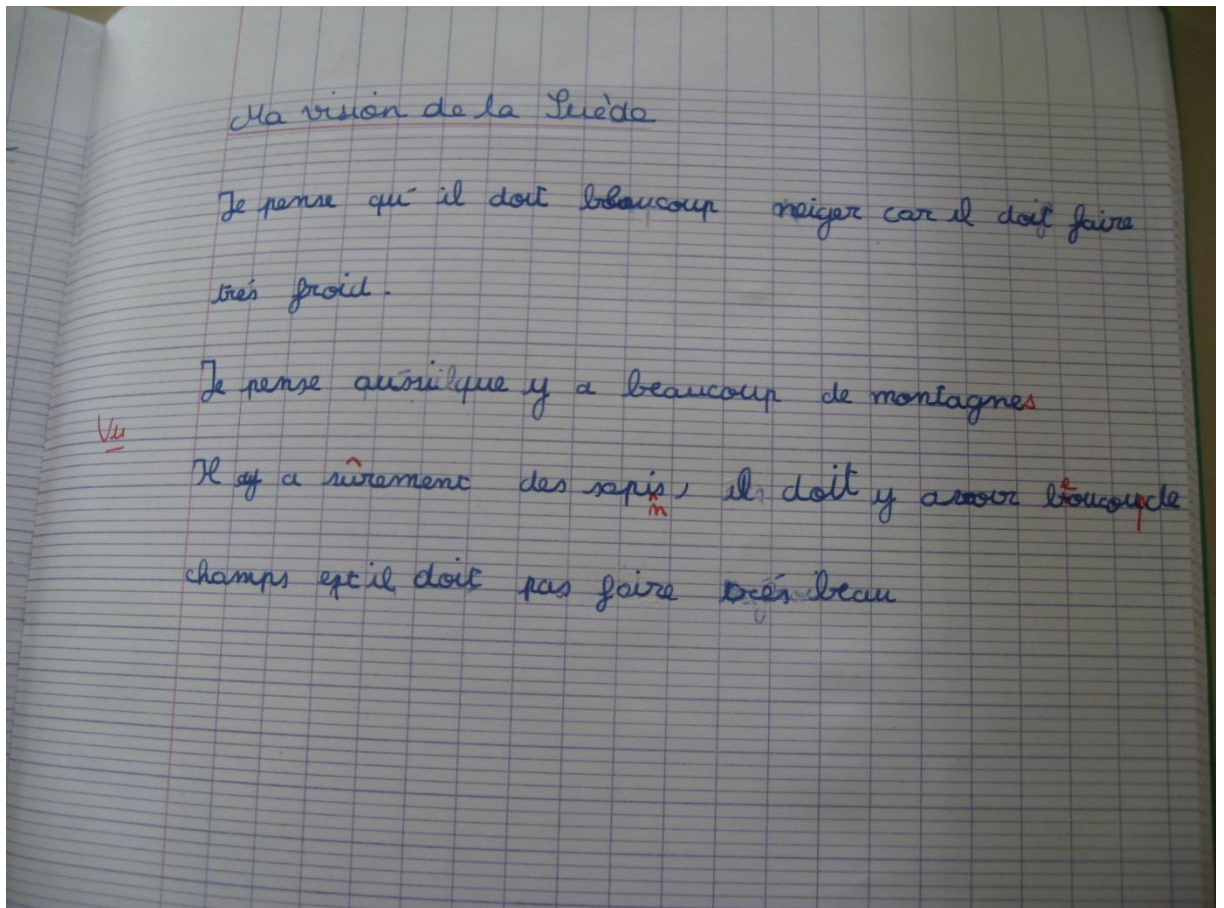 Ma vision de la Suède
Je pense qu'il doit beaucoup neiger car il doit faire
trés froid.
Je pense aussi que y a beaucoup de montagnes
Vu
Il y a sûrement des sapins, il doit y avoir beaucoup de
champs et il doit pas faire trés beau